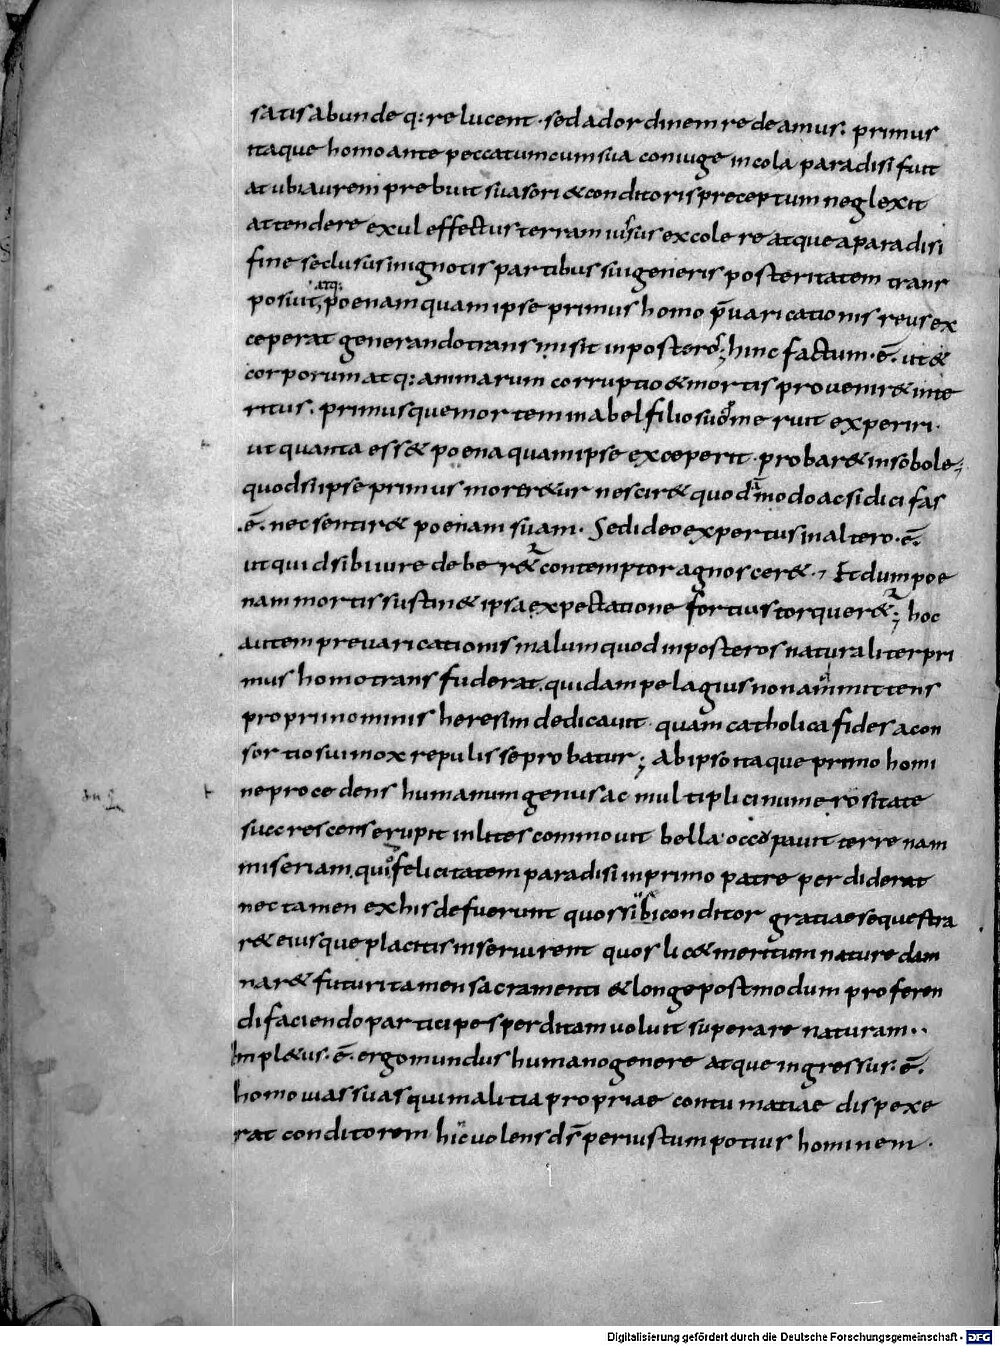 satis abunde q: relucent · sed ad ordinem redeamus. primus
itaque homo ante peccatum cum sua coniuge incola paradisi fuit
at ubi aurem prebuit suasori & conditoris preceptum neglexit
attendere exul effectus terram iussus excolere atque a paradisi
fine seclusus in ignotis partibus sui generis posteritatem trans
posuit, atq: poenam quam ipse primus homo p̄uaricationis reus ex
ceperat generando transmisit in posteros; hinc factum · ē · ut &
corporum atq: animarum corruptio & mortis prouenir& inte
ritus. primusque mortem in abel filio suo meruit experiri ·
ut quanta ess& poena quam ipse exceperit · probar& in sobole ·
quod si ipse primus morer&ur nescir& quodammodo ac si dici fas
· ē · nec sentir& poenam suam · Sed ideo expertus in altero · ē ·
ut quid sibi iure deber&ur contemptor agnoscer& · Et dum poe
nam mortis sustin& ipsa expectatione fortius torquer&ur; hoc
autem preuaricationis malum quod in posteros naturaliter pri
mus homo transfuderat. quidam pelagius non ammittens
proprii nominis heresim dedicauit · quam catholica fides a con
sortio sui mox repulisse probatur; Ab ipso itaque primo homi
ne procedens humanum genus ac multiplici numerositate
succrescens erupit in lites commouit bella occupauit terrenam
miseriam. qui felicitatem paradisi in primo patre perdiderat
nec tamen ex his defuerunt quos sibi conditor gratiae sequestra
r& eiusque placitis inseruirent quos lic& meritum nature dam
nar& futuri tamen sacramenti & longe postmodum proferen
di faciendo participes perditam uoluit superare naturam ·
Impl&us · ē · ergo mundus humano genere atque ingressus · ē ·
homo uias suas qui malitia propriae contumatiae dispexe
rat conditorem hinc uolens d̄s per iustum potius hominem ·
Digitalisierung gefördert durch die Deutsche Forschungsgemeinschaft - DFG